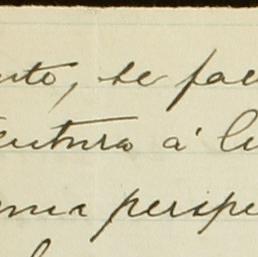 uto, te fal
tentura á lu
uma perspe